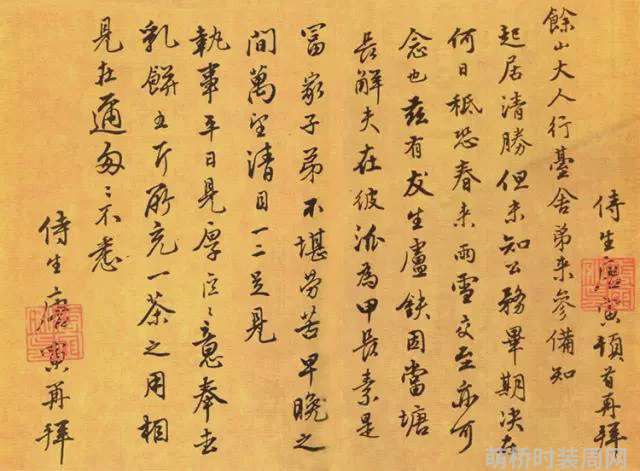 侍生唐寅頓首再拜
餘山大人行臺舍弟来參備知
起居清勝但未知公務畢期决在
何日秪恐春来雨雪交至亦可
念也茲有友生盧鈇因當塘
長解夫在彼派為甲長素是
冨家子弟不堪劳苦早晚之
間萬望清目一二足見
執事平日見厚區〻意奉去
乳餅五斤聊充一茶之用相
見在邇匆〻不悉
侍生唐寅再拜
萌桥时装周网